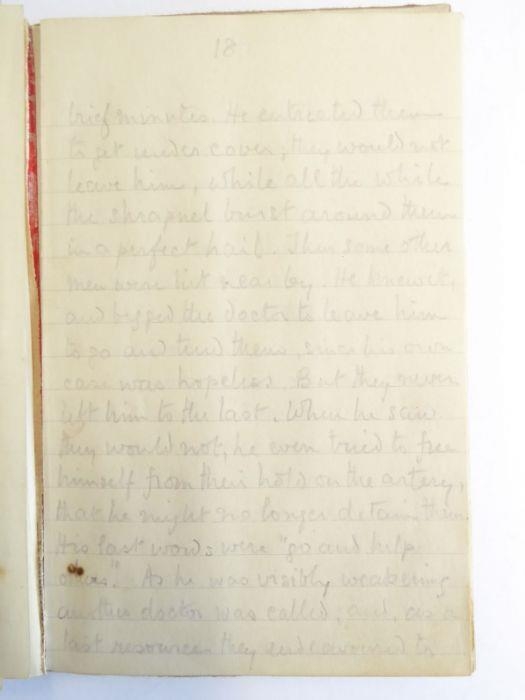 18
brief minutes. He entreated them
to get under cover; they would not
leave him, while all the while
the shrapnel burst around them
in a perfect hail. Then some other
men were hit near by. He knew it,
and begged the doctor to leave him
to go and tend them, since his own
case was hopeless. But they never
left him to the last. When he saw
they would not, he even tried to free
himself from their hold on the artery,
that he might no longer detain them.
His last words were "go and help
others". As he was visibly weakening
another doctor was called; and, as a
last resource they endeavoured to